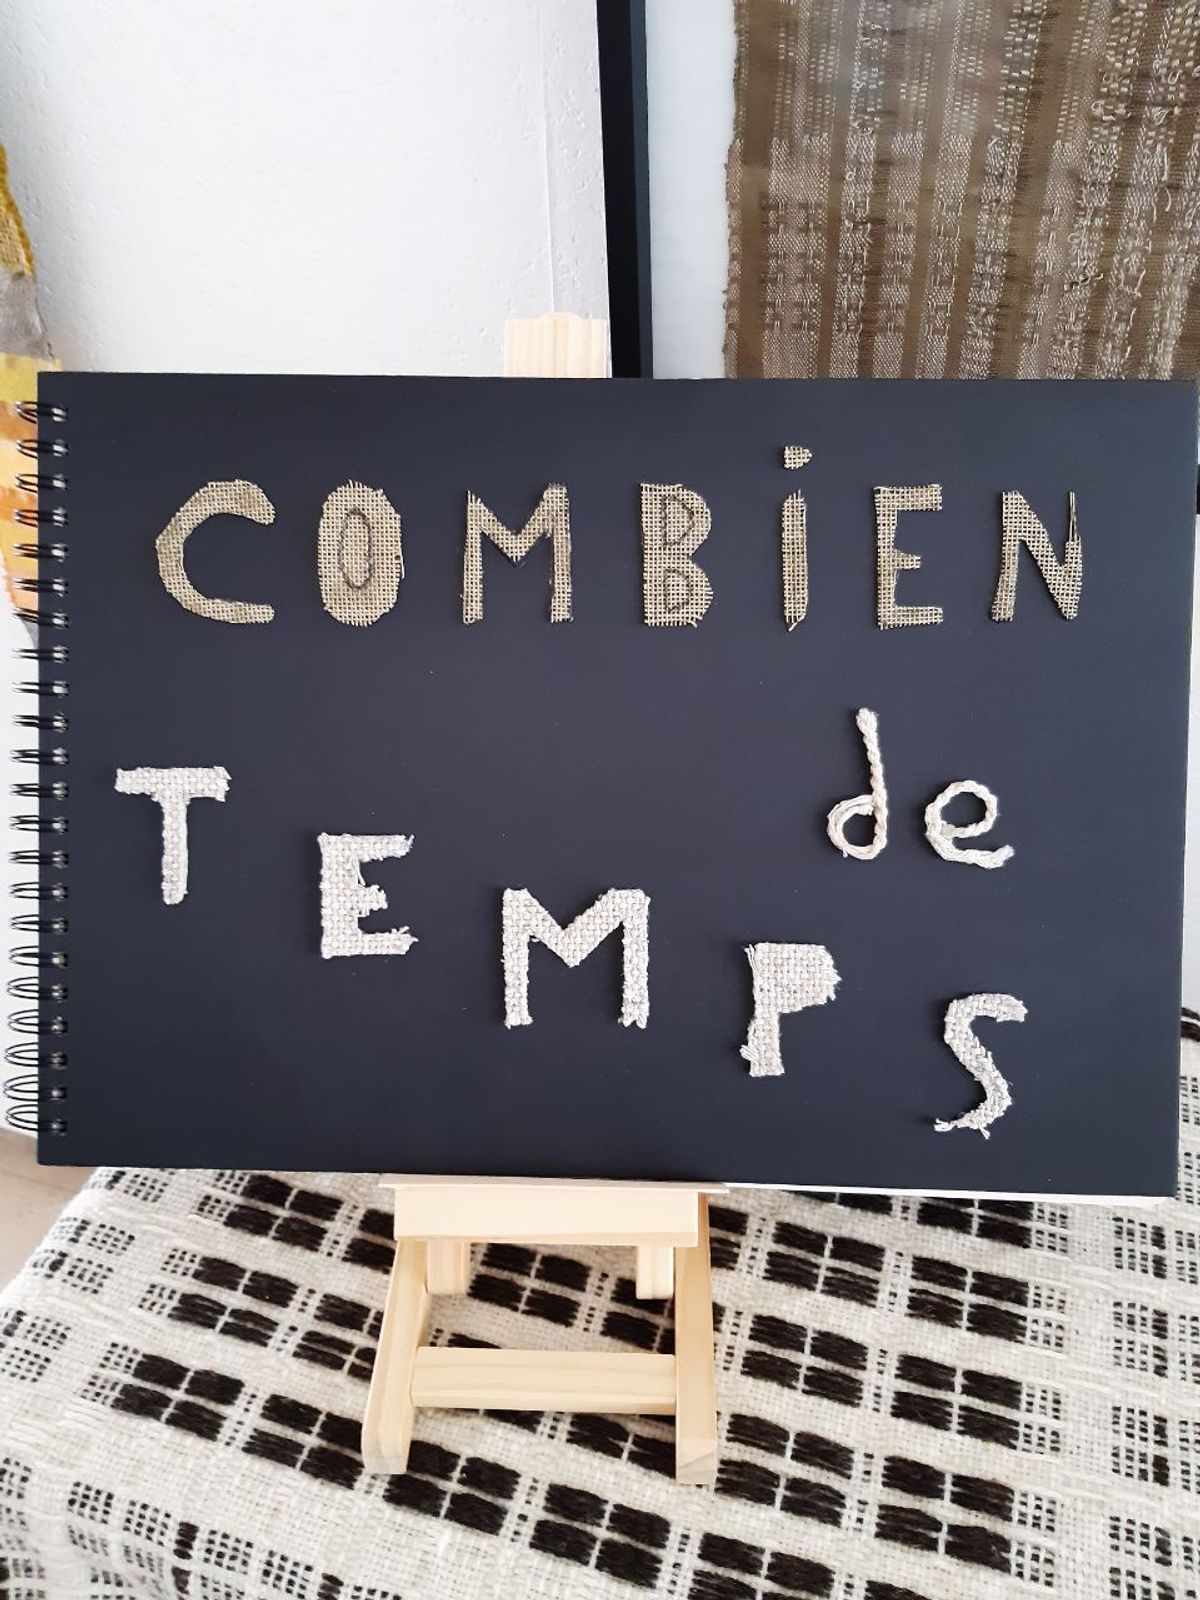 COMBiEN
de
TEMPS